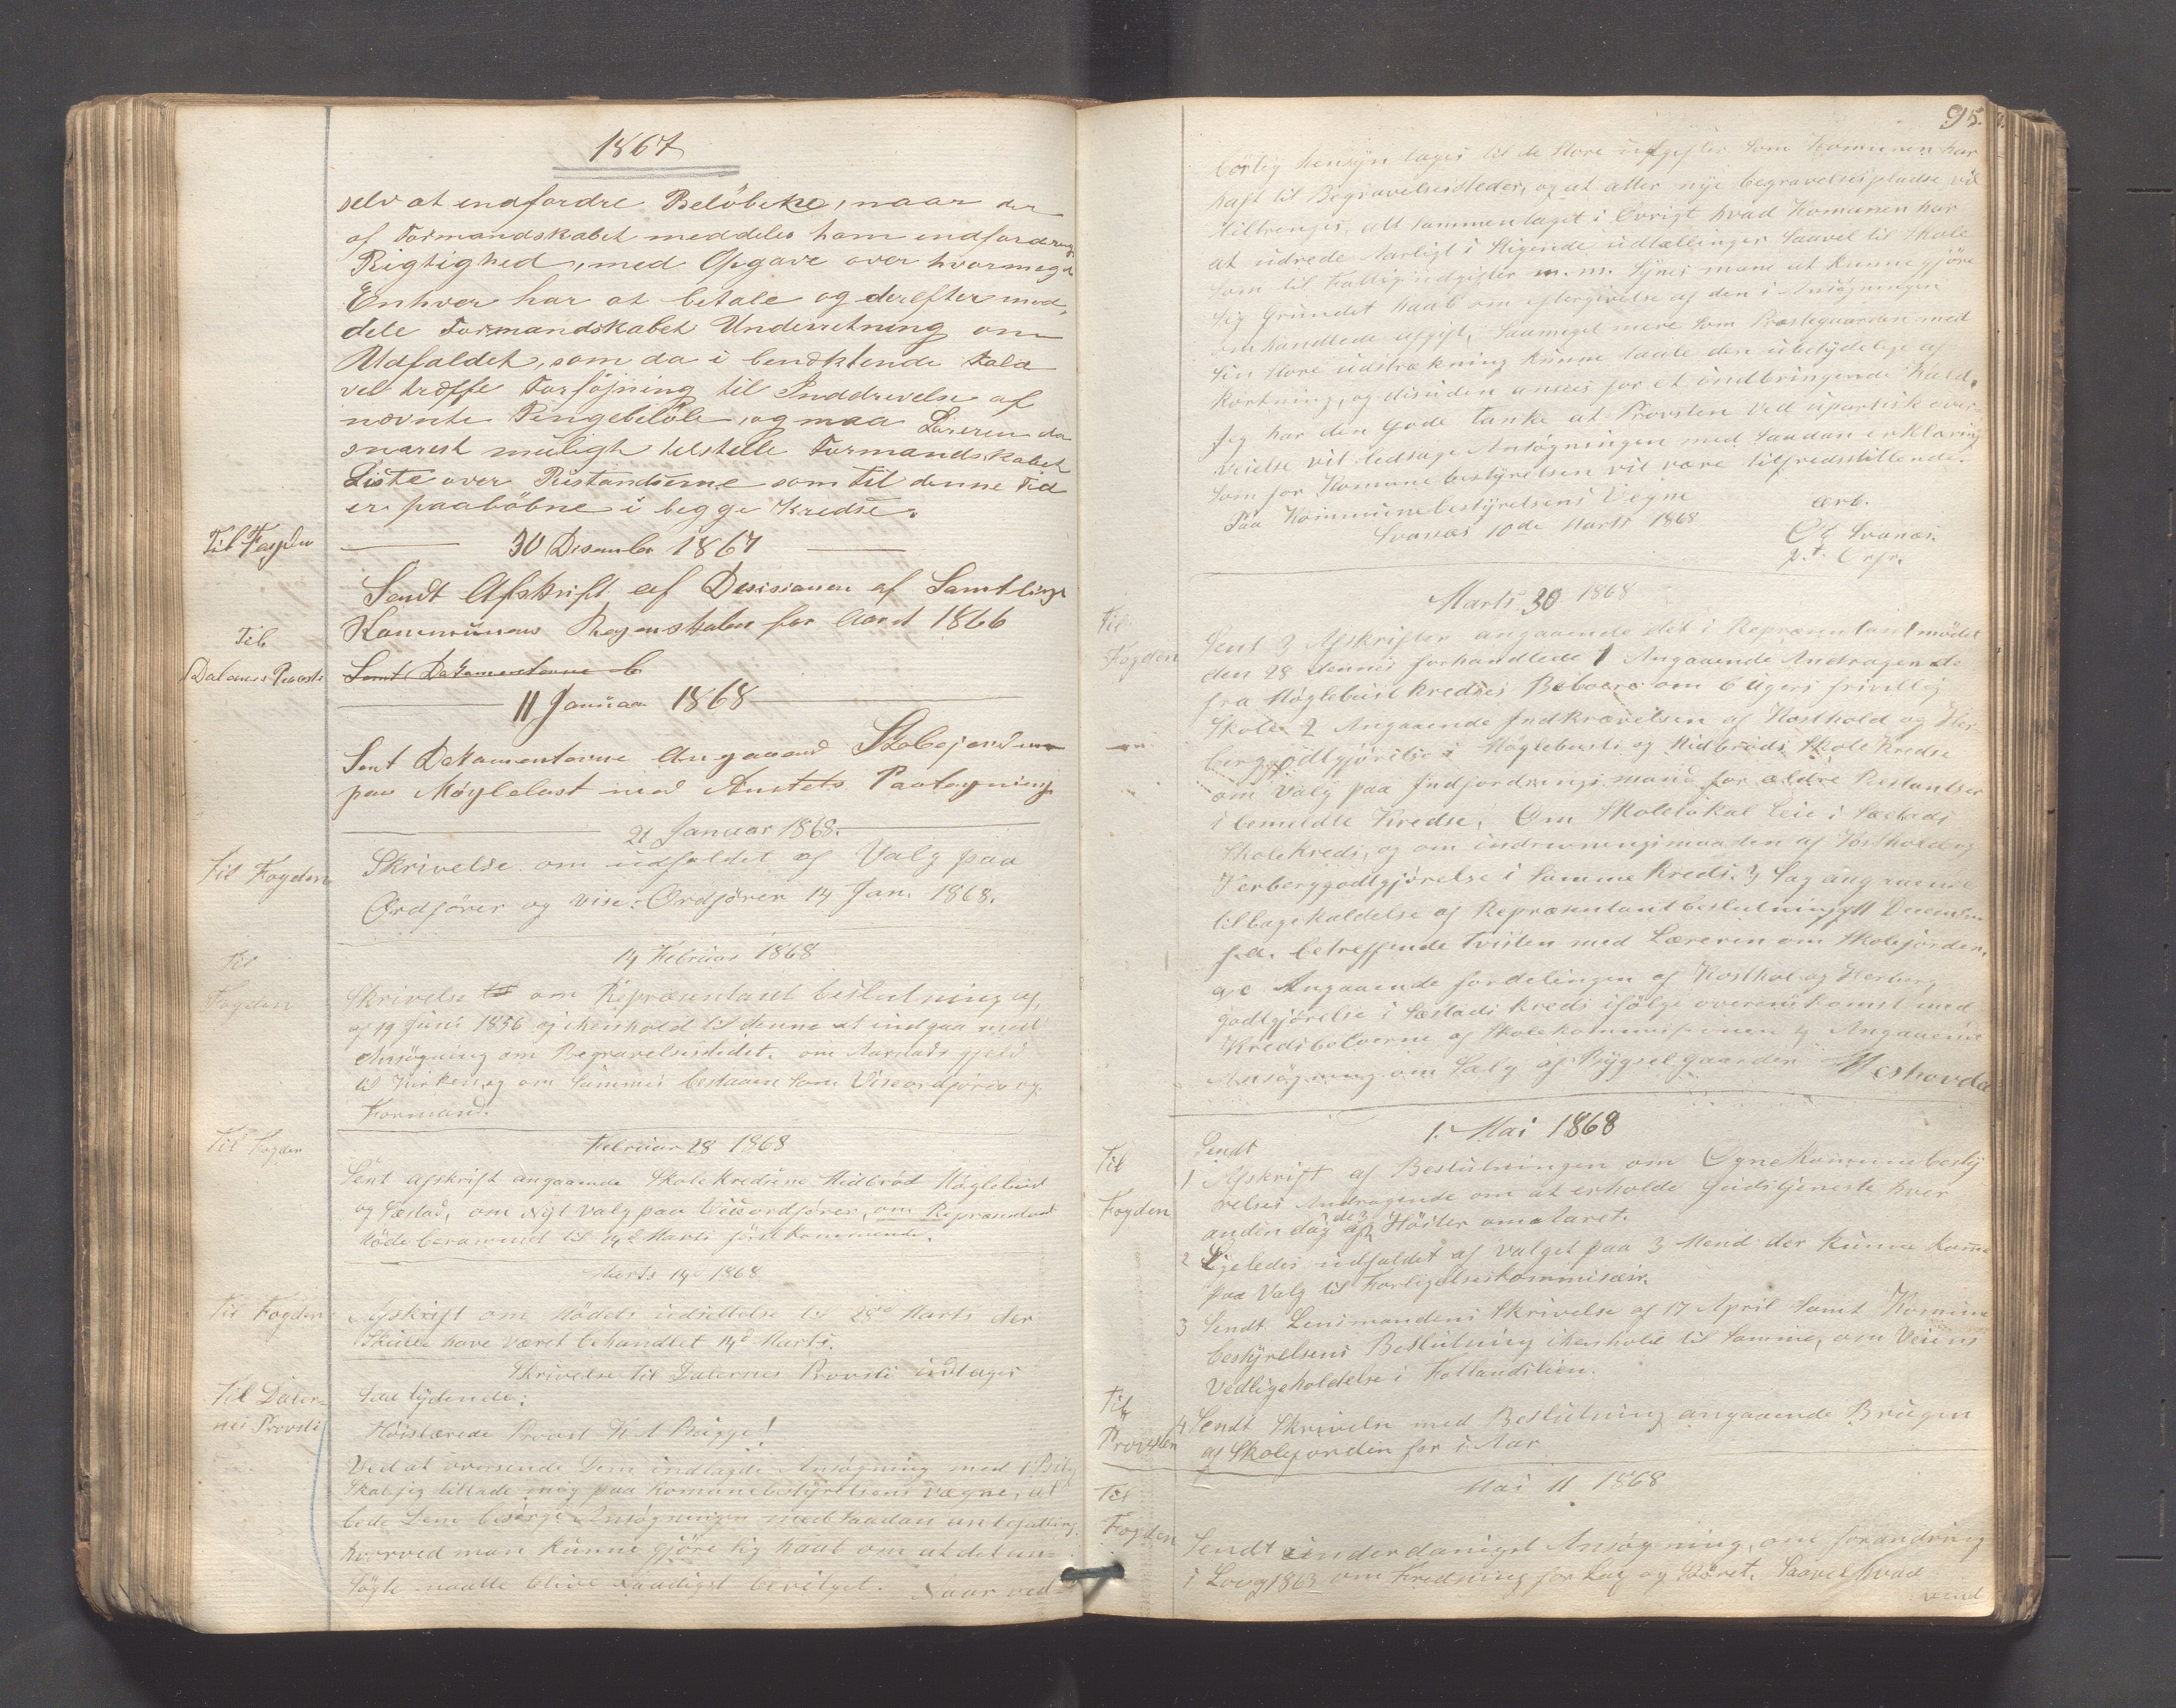 1867
selv at indfordre Beløbene, naar der
af Formandskabet meddeles ham indfordrings
Rigtighed, med Opgave over hvormeget
Enhver har at betale og derefter med,
dele Formandskabet Underretning om
Udfaldet, som da i benægtende Fald
vil træffe Forføjning til Inddrivelse af
nævnte Pengebeløb, og maa Læreren da
snarest muligt tilstille Formandskabet
Liste over Restantserne som til denne Tid
er paaløbne i begge Kredse.
Til Fogden
30 Desember 1867
Sendt Afskrift af Desisionen af Samtlige
Kommunens Regnskaber for Aaret 1866
Til
Dalernes Provsti
Sent Dokumenterne
11 Januar 1868
Sent Dokumenterne Angaaend Skolejorden
paa Møglebust med Amtets Paategning
21 Januar 1868.
Til Fogden
Skrivelse om udfaldet af Valg paa
Ordfører og vise-Ordfører 14 Jan. 1868.
14 Februar 1868
Til
Fogden
Skrivelse om Repræsentant beslutning af
af 19 Juni 1856 og ihenhold til denne at indgaa med
Ansøgning om Begravelsesstedet. om Aarstads gjeld
til Kirken, og om Sammes bestaaen som Viseordfører og
Formand.
Til Fogden
Februar 28 1868
Sent afskrift angaaende Skolekredsene Midbrød Møglebust
og Sæstad, om Nyt valg paa Viceordfører, om Repræsentant
Møde berammet til 14de Marts førstkommende.
Marts 14 1868
Til Fogden
Afskrift om Mødets udsettelse til 28de Marts der
Skulle have været behandlet 14d Marts.
Skrivelse til Dalernes Provsti indtages
Til Daler-
nes Provsti
Saa lydende:
Høistærede Provst
Ved at oversende Dem indlagde Ansøgning med 1 Bilag
Skal jeg tillade mig paa Komunebestyrelsens vægne, at
bede Dem besørge Ansøgningen med saadan anbefalling
hvorved man kunne gjøre sig haab om at det an-
søgte maatte blive naadigst bevilget. Naar ved-
95.
børlig hensyn tages til de store udgifter som Komunen har
haft til Begravelsessteder, og at atter nye begravelsespladse vil
tiltrenges, alt sammenlaget i Øvrigt hvad Komunen har
at udrede Aarligt i stigende udtællinger saavel til Skole
som til Fattigudgifter m.m. synes man at kunne gjøre
sig Grundet Haab om eftergivelse af den i Ansøgningen
omhandlede afgift, saameget mere som Prestegaarden med
sin store udstrækning kunne taale den ubetydelige af-
kortning, og desuden ansees for et indbringende Kald.
Jeg har den gode tanke at Provsten ved upartisk over-
veielse vil ledsage Ansøgningen med saadan erklæring
som for Komunebestyrelsen vil være tilfredsstillende.
Paa Kommunebestyrelsens Vegne
Svanæs 10de Marts 1868
ærb.
Svanæs.
p.t. Orfr.
Marts 30 1868
Til
Fogden
Sent 3 Afskrifter angaaende det i Repræsentantmødet
den 28 dennes forhandlede 1 Angaaende Andragende
fra Møglebust kredses Beboere om 6 ugers frivillig
Skole 2 Angaaende Indkrævelsen af Kosthold og Her-
berggodtgjørelse i Møglebusts og Midbrøds Skole Kredse
om Valg paa Indfordringsmand for ældre Restantser
i bemeldte Kredse. Om Skolelokal Leie i Sæstads
Skolekreds, og om inddrivningsmaaden af Kosthold og
Herberggodtgjørelse i samme Kreds. 3 Sag angaaende
tilbagekaldelse af Repræsentantbeslutning af 11 Desember
f.a. betreffende tvisten med Læreren om Skolejorden.
Angaaende fordelingen af Kosthol og Herberg-
godtgjørelse i Sæstads kreds ifølge overenskomst med
Kredsbeboerne og Skolekommissionen 4 Angaaende
Ansøgning om Salg af Bygselgaarden
1. Mai 1868
Til
Fogden
Sendt
1 Afskrift af Beslutningen om Ogne Komunebesty
relses Andragende om at erholde Gudstjeneste hver
anden dag af de 3 Høiter om aaret.
2 Ligeledes udfaldet af valget paa 3 Mend der kunne komme
paa Valg til Forligelseskommisær.
3 Sendt Lensmandens Skrivelse af 17 April samt Komune
bestyrelsens Beslutning ihenhold til samme, om Veiens
Vedligeholdelse i
Til
Provsten
4 Sendt Skrivelse med Beslutning angaaende Brugen
af Skolejorden for i Aar
Mai 11 1868
Til
Fogden
Sendt underdanigst Ansøgning, om forandring
i Lov 1863 om Fredning for Lax og Søøret. Saavel hvad
vend